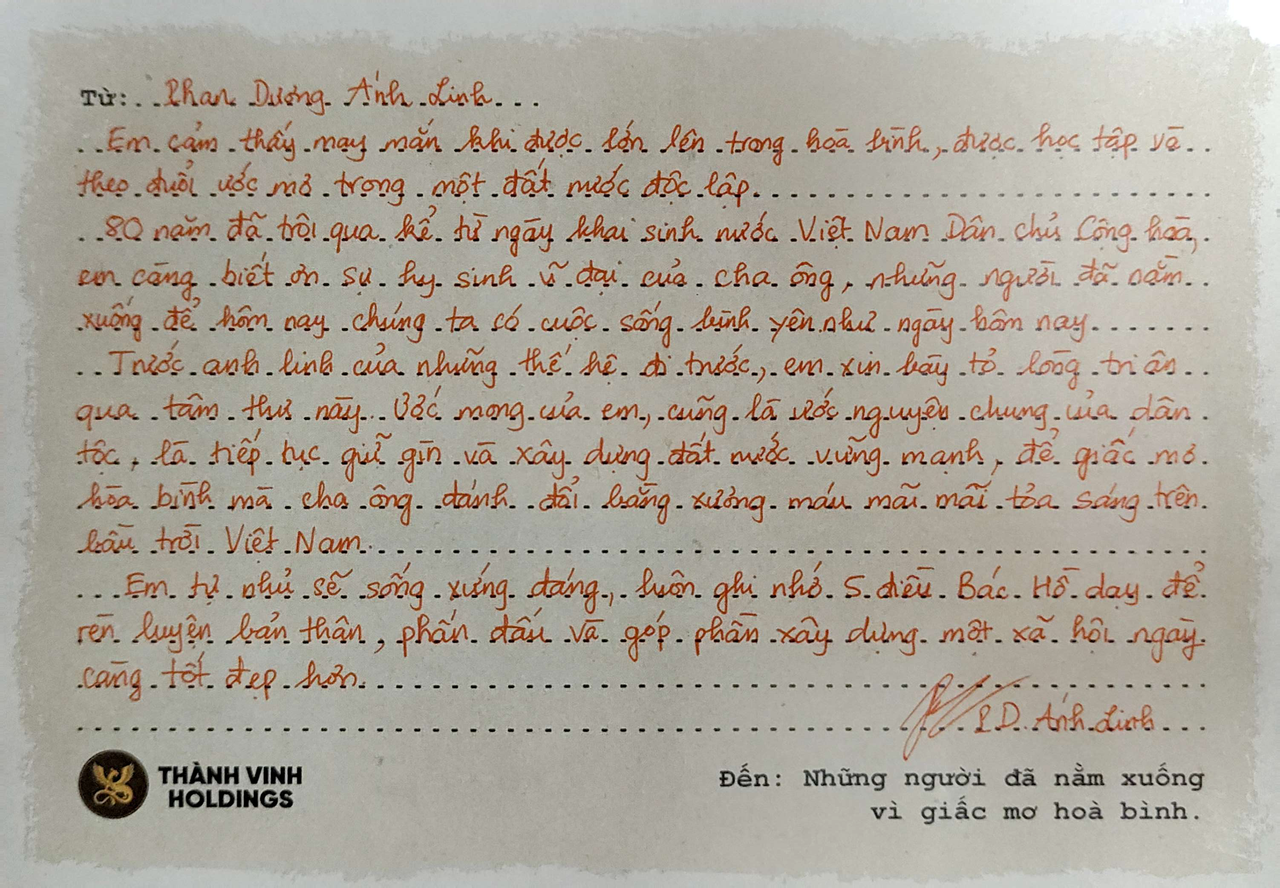 Từ: Phan Dương Ánh Linh
Em cảm thấy may mắn khi được lớn lên trong hoà bình, được học tập và
theo đuổi ước mơ trong một đất nước độc lập.
80 năm đã trôi qua kể từ ngày khai sinh nước Việt Nam Dân chủ Cộng hoà,
em càng biết ơn sự hy sinh vĩ đại của cha ông, những người đã nằm
xuống để hôm nay chúng ta có cuộc sống bình yên như ngày hôm nay.
Trước anh linh của những thế hệ đi trước, em xin bày tỏ lòng tri ân
qua tâm thư này. Ước mong của em, cũng là ước nguyện chung của dân
tộc, là tiếp tục giữ gìn và xây dựng đất nước vững mạnh, để giấc mơ
hòa bình mà cha ông đánh đổi bằng xương máu mãi mãi tỏa sáng trên
bầu trời Việt Nam.
Em tự nhủ sẽ sống xứng đáng, luôn ghi nhớ 5 điều Bác Hồ dạy để
rèn luyện bản thân, phấn đấu và góp phần xây dựng một xã hội ngày
càng tốt đẹp hơn.
P.D. Ánh Linh
THÀNH VINH
HOLDINGS
Đến: Những người đã nằm xuống
vì giấc mơ hoà bình.